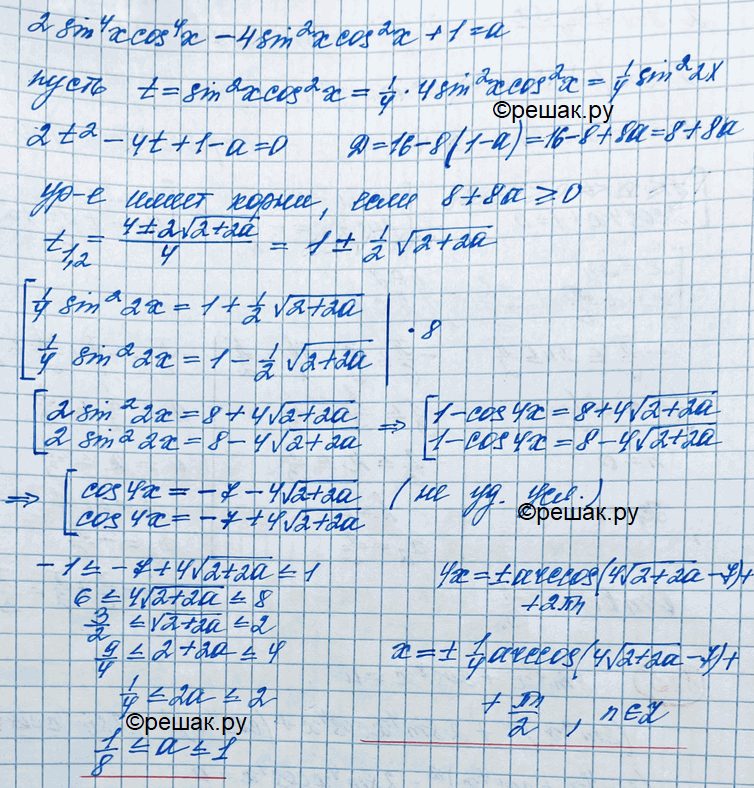 2 sin⁴x cos⁴x − 4 sin²x cos²x + 1 = a
пусть t = sin²x cos²x = 1/4 · 4 sin²x cos²x = 1/4 sin²2x
©решак.ру
2t² − 4t + 1 − a = 0 D = 16 − 8(1 − a) = 16 − 8 + 8a = 8 + 8a
ур-е имеет корни, если 8 + 8a ≥ 0
t₁,₂ = (4 ± 2√(2+2a))/4 = 1 ± 1/2 √(2+2a)
[ 1/4 sin²2x = 1 + 1/2 √(2+2a) | · 8
1/4 sin²2x = 1 − 1/2 √(2+2a)
[ 2 sin²2x = 8 + 4√(2+2a) ⇒ [ 1 − cos4x = 8 + 4√(2+2a)
2 sin²2x = 8 − 4√(2+2a) 1 − cos4x = 8 − 4√(2+2a)
⇒ [ cos4x = −7 − 4√(2+2a) (не уд. усл.)
cos4x = −7 + 4√(2+2a)
©решак.ру
−1 ≤ −7 + 4√(2+2a) ≤ 1
6 ≤ 4√(2+2a) ≤ 8
3/2 ≤ √(2+2a) ≤ 2
9/4 ≤ 2 + 2a ≤ 4
1/4 ≤ 2a ≤ 2
©решак.ру
1/8 ≤ a ≤ 1
4x = ± arccos(4√(2+2a) − 7) +
+ 2πn
x = ± 1/4 arccos(4√(2+2a) − 7) +
+ πn/2 , n ∈ Z